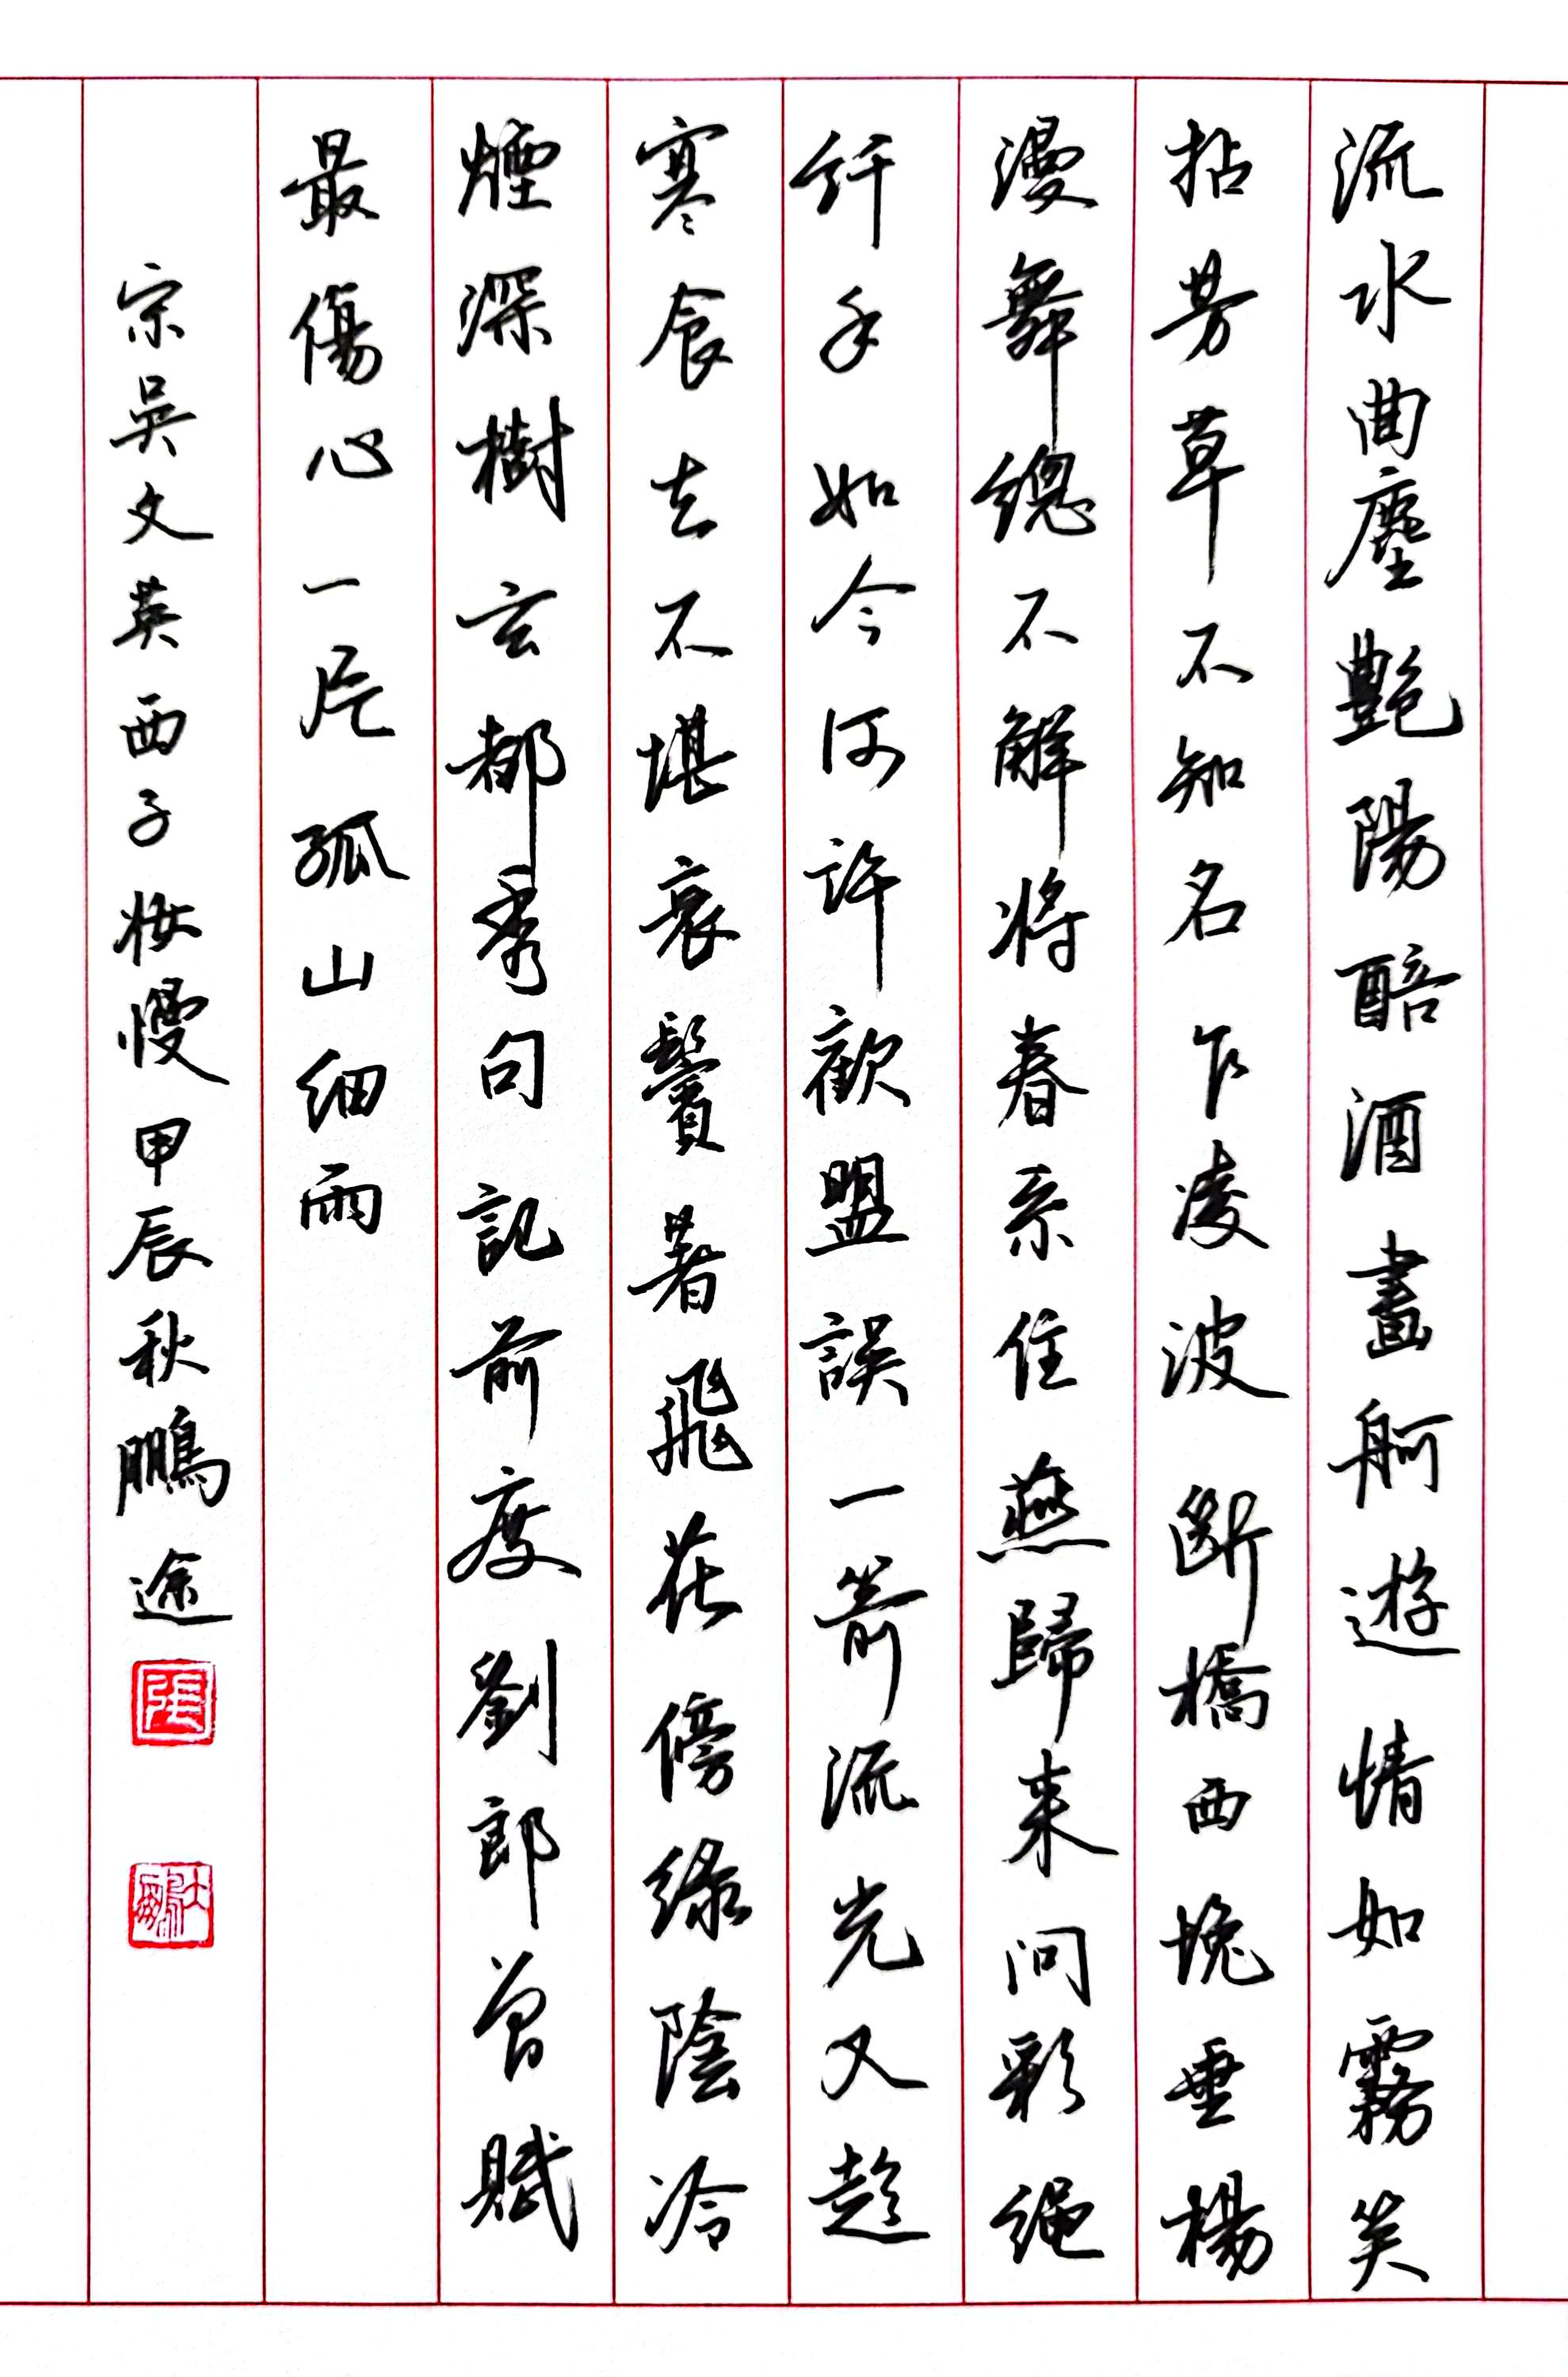 流水曲塵艷陽醅酒畫舸遊情如霧笑
拈芳草不知名乍凌波斷橋西堍垂楊
漫舞總不解將春系住燕歸来問彩繩
纤手如今何許歡盟誤一箭流光又趁
寒食去不堪衰鬢著飛花傍綠陰冷
煙深樹玄都秀句記前度劉郎曾賦
最傷心一片孤山细雨
宗吳文英西子妆慢甲辰秋鵬途
張